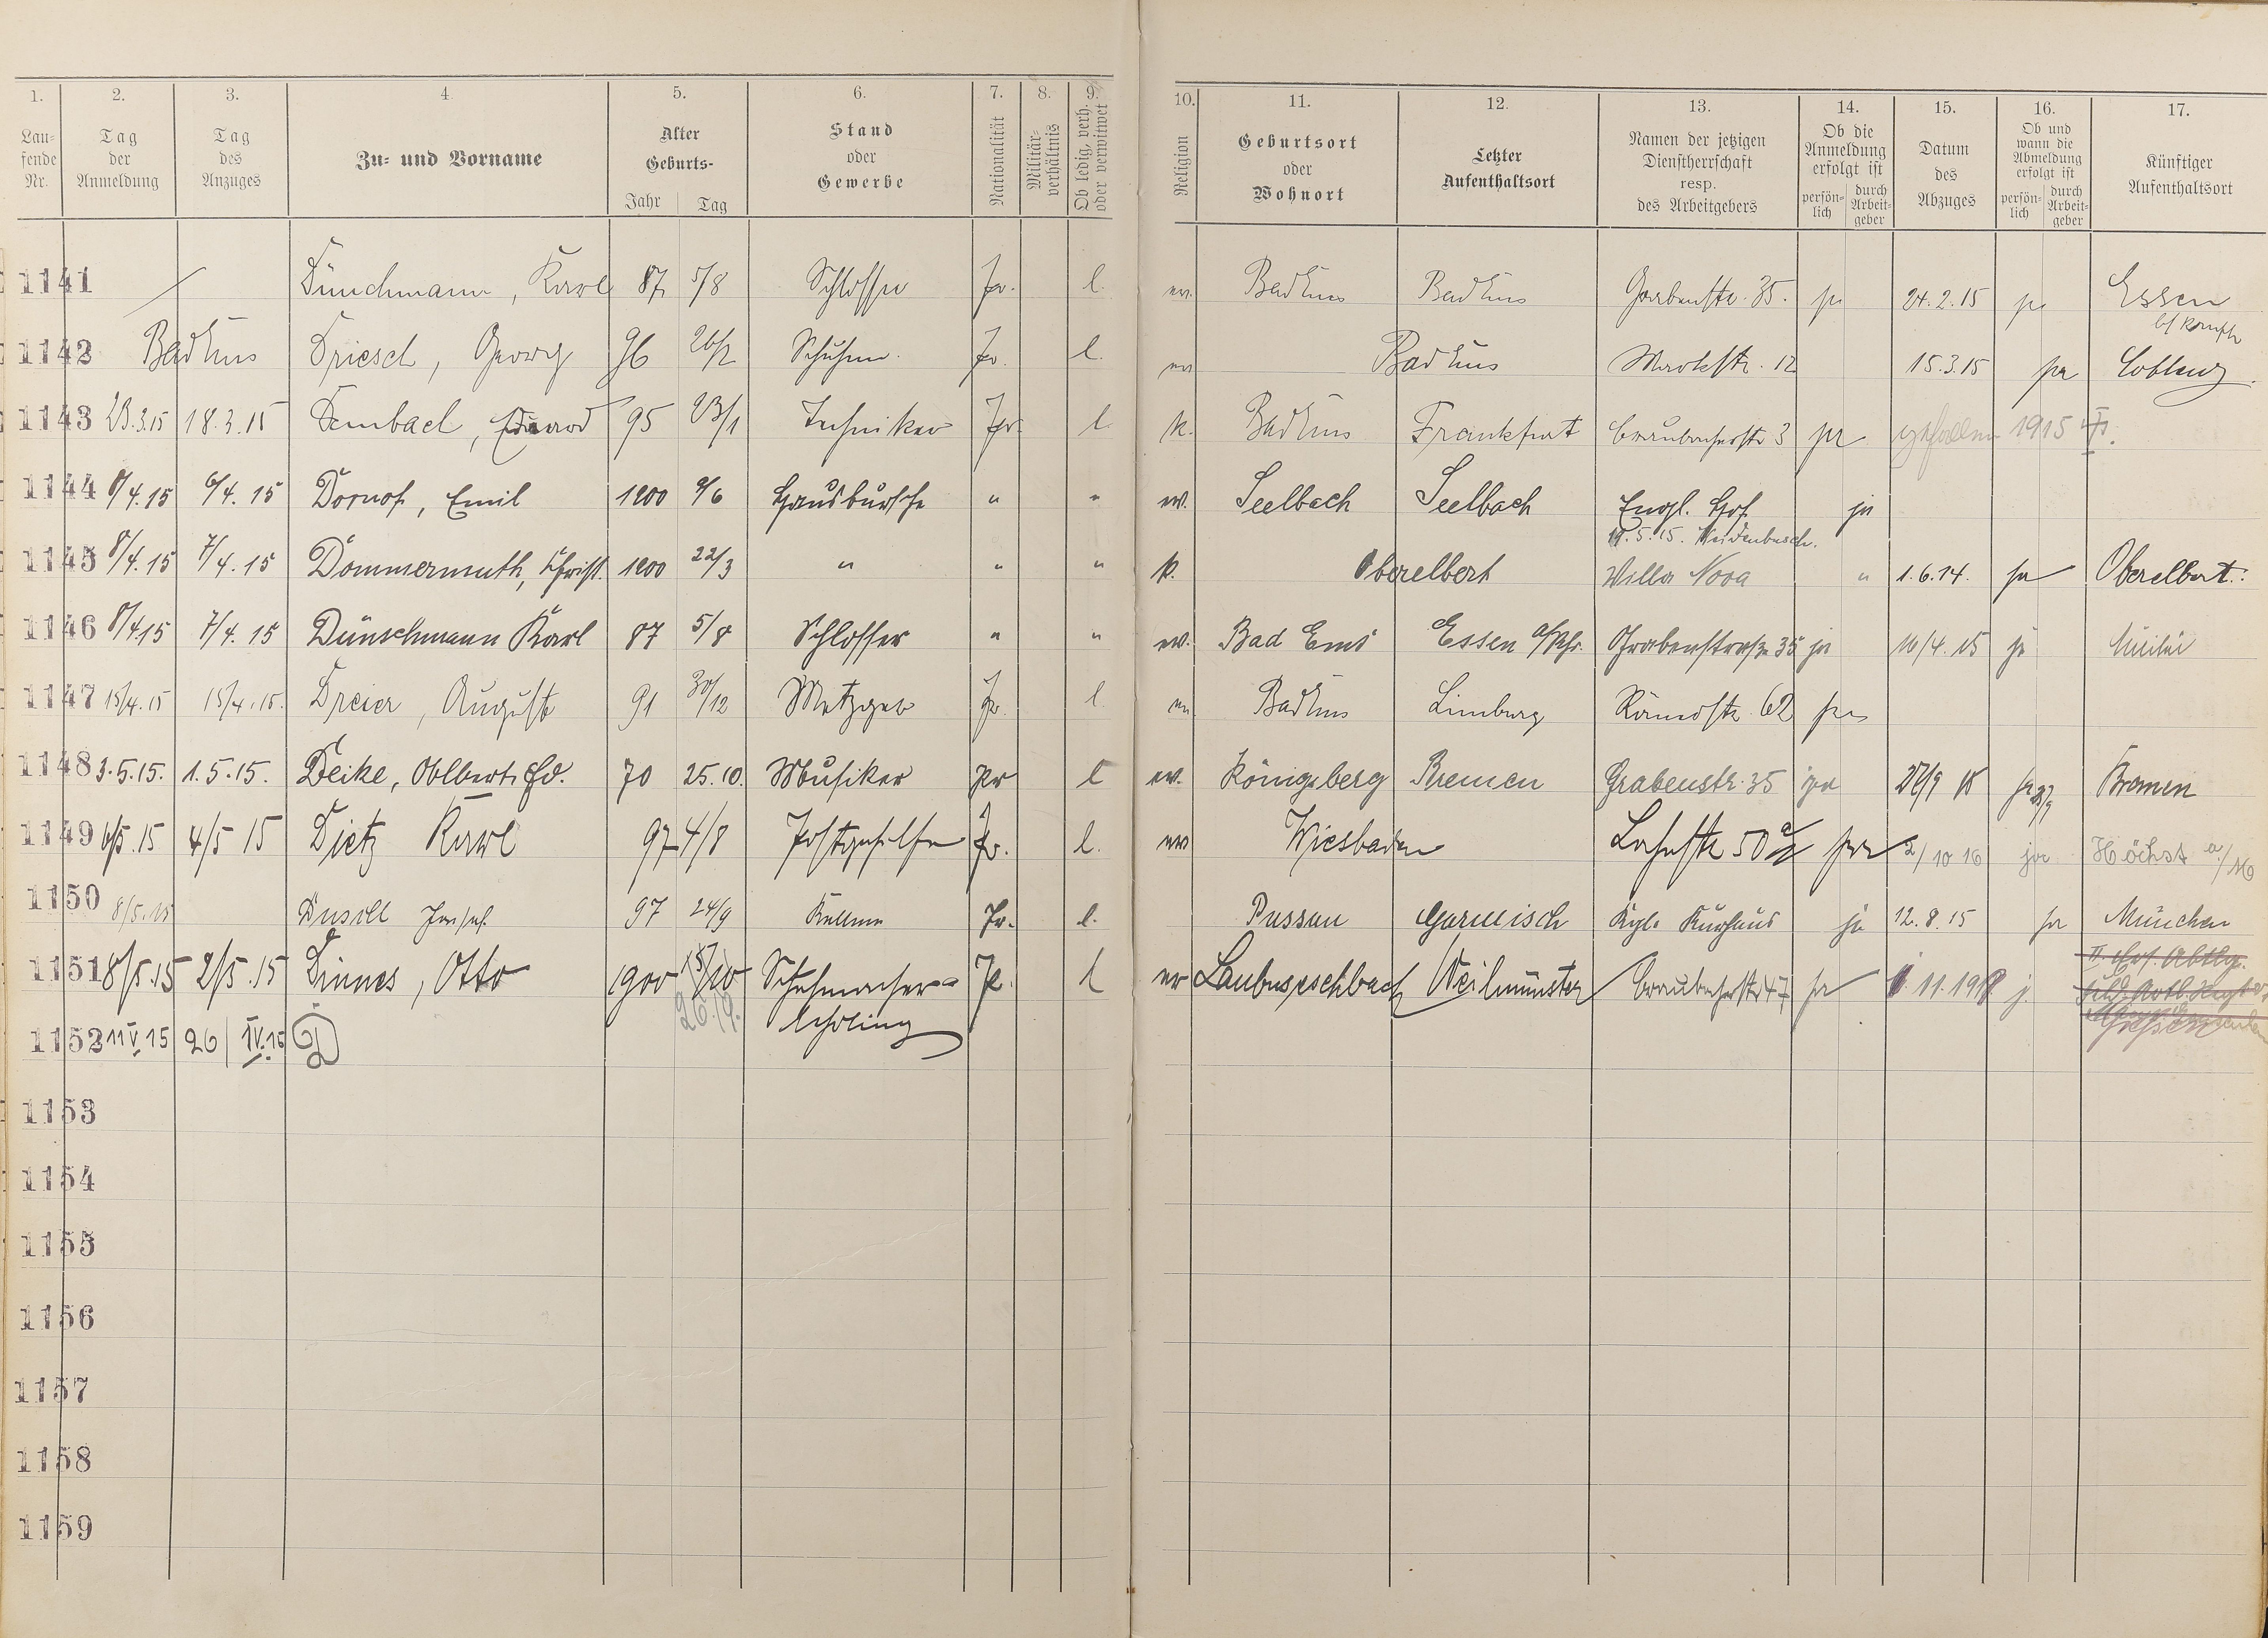 1. 2. 3. 4. 5. 6. 7. 8. 9. 10. 11. 12. 13. 14. 15. 16. 17.
Laufende Nr. | Tag der Anmeldung | Tag des Anzuges | Zu- und Vorname | Alter Geburts- Jahr Tag | Stand oder Gewerbe | Nationalität | Militärverhältnis | Ob ledig, verh. oder verwitwet | Religion | Geburtsort oder Wohnort | Letzter Aufenthaltsort | Namen der jetzigen Dienstherrschaft resp. des Arbeitgebers | Ob die Anmeldung erfolgt ist persönlich durch Arbeitgeber | Datum des Abzuges | Ob und wann die Abmeldung erfolgt ist persönlich durch Arbeitgeber | Künftiger Aufenthaltsort
1141 Dünschmann, Karl 87 5/8 Schlosser Pr. l. ev. Bad Ems Bad Ems Grabenstr. 35. ja 24.2.15 ja Essen
1142 Bad Ems Driesch, Georg 96 26/2 Schuhm. Pr. l. ev Bad Ems Marktstr. 12 15.3.15 ja Coblenz.
1143 23.3.15 18.3.15 Dembach, Eduard 95 23/1 Techniker Pr. l k. Bad Ems Frankfurt Braubacherstr 3 ja gefallen 1915
1144 8/4.15 6/4.15 Dornof, Emil 1900 9/6 Hausbursche " " ev. Seelbach Seelbach Engl. Hof ja
19.5.15. Weidenbusch.
1145 8/4.15 7/4.15 Dommermuth, Christ. 1900 22/3 " " " k. Oberelbert Villa Nova " 1.6.14. ja Oberelbert.
1146 8/4.15 7/4.15 Dünschmann Karl 87 5/8 Schlosser " " ev. Bad Ems Essen a/Rhr. Grabenstraße 35 ja 10/4.15 ja Militär
1147 15/4.15 15/4.15. Dreier, August 91 30/12 Metzger Pr. l ev Bad Ems Limburg Römerstr. 62 ja
1148 3.5.15. 1.5.15. Deike, Albert Ed. 70 25.10. Musiker Pr l ev. Königsberg Bremen Grabenstr. 35 ja 27/9 15 ja 27/9 Bremen
1149 6/5.15 4/5 15 Dietz Karl 97 4/8 Postgehilfe Pr. l. ev Wiesbaden Lahnstr 50 a ja 2/10 16 ja Höchst a/M
1150 8/5.15 Dusill Josef 97 24/9 Kellner Pr. l. Passau Garmisch Kgl. Kurhaus ja 12.8.15 ja München
1151 8/5.15 2/5.15 Dinnes, Otto 1900 15/10 Schuhmacher- Pr. l ev Laubuseschbach Weilmünster Braubacherstr 47 ja 11.19 j.
26.9. lehrling
1152 11 V 15 26 IV.15 D
1153
1154
1155
1156
1157
1158
1159